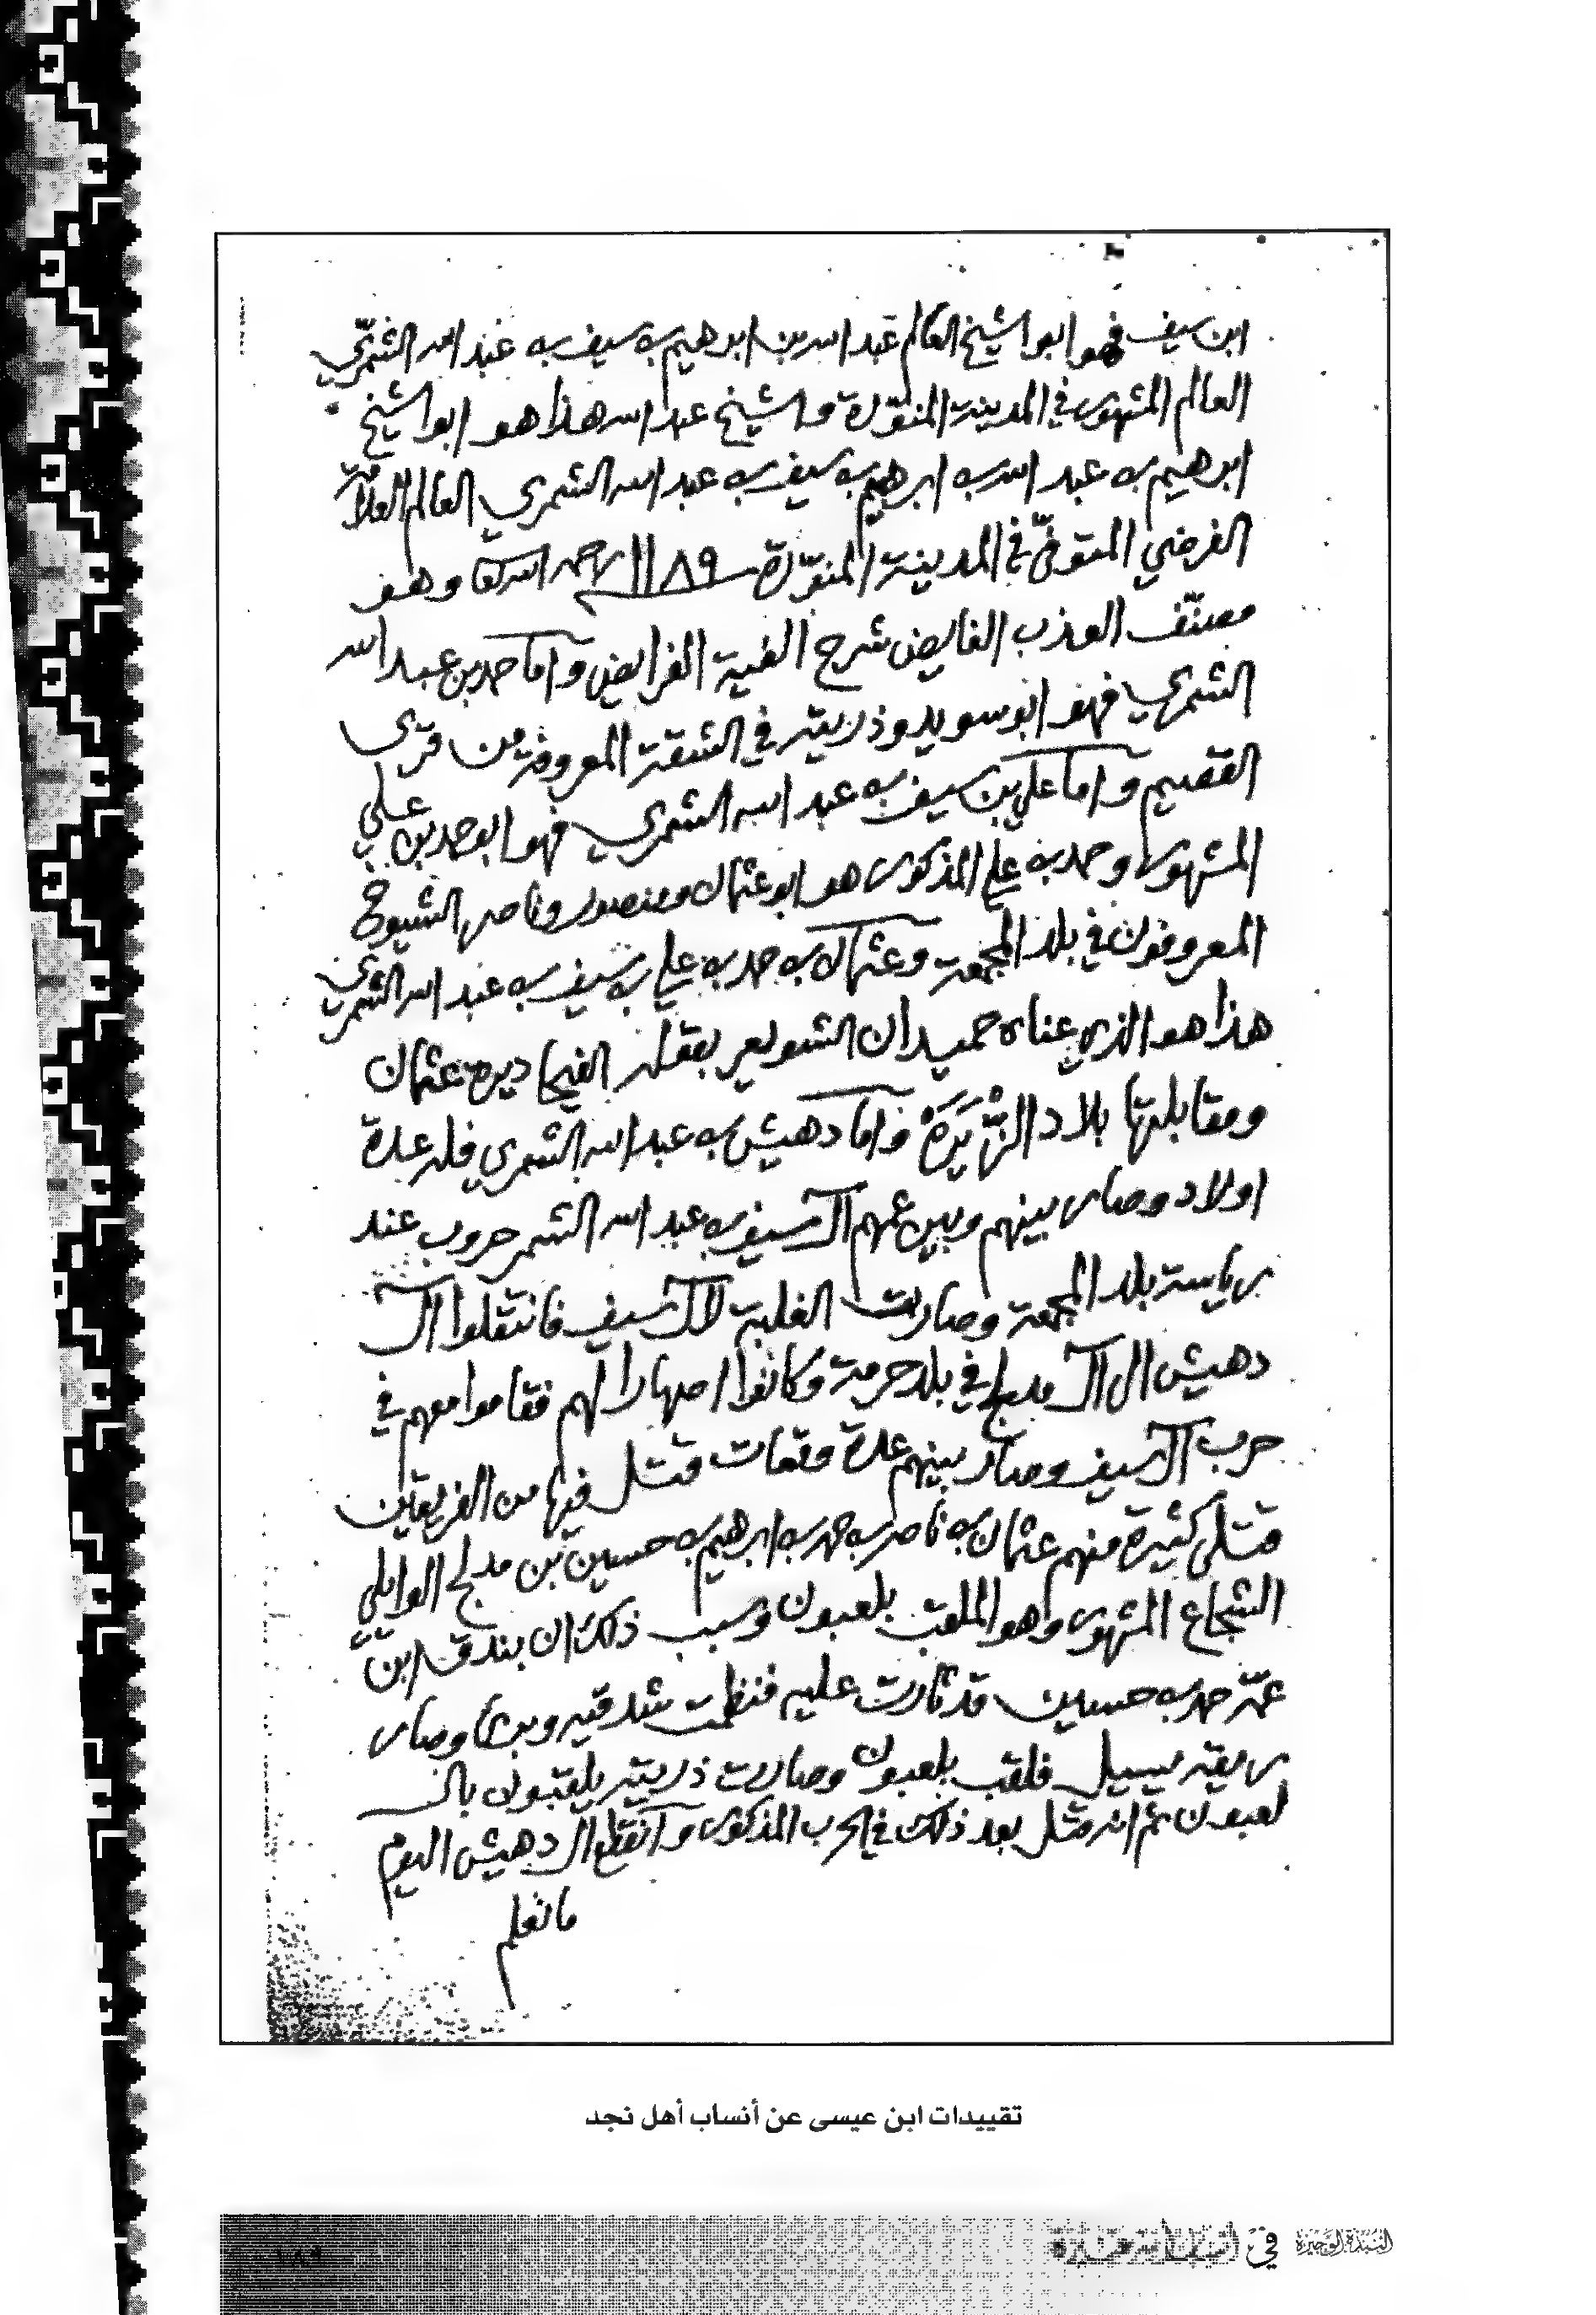 ابن سيف فهو ابو الشيخ العالم عبد الله بن ابرهيم بن سيف بن عبد الله الشمّري
العالم المشهور في المدينة المنوّرة والشيخ عبد الله هذا هو ابو الشيخ
ابرهيم بن عبد الله بن ابرهيم بن سيف بن عبد الله الشمري العالم العلامة
الفرضي المتوفّى في المدينة المنوّرة سنة ١١٨٩ رحمه الله تعا وهو
مصنّف العذب الفايض شرح الفية الفرايض وأما حمد بن عبد الله
الشمري فهو ابو سويد وذريته في الشقة المعروفة من قرى
القصيم وأما علي بن سيف بن عبد الله الشمري فهو ابو حمد بن علي
المشهور وحمد بن علي المذكور هو ابو عثمان ومنصور وناصر الشيوخ
المعروفون في بلد المجمعة وعثمان بن حمد بن علي بن سيف بن عبد الله الشمري
هذا هو الذي عناه حميدان الشويعر بقوله الفيحا ديرة عثمان
ومقابلتها بلاد الزِّيَرَةْ وأما دهيش بن عبد الله الشمري فله عدة
اولاد وصار بينهم وبين عمهم آل سيف بن عبد الله الشمر حروب عند
رياسة بلد المجمعة وصارت الغلبة لآل سيف فانتقلوا آل
دهيش الى آل مدلج في بلد حرمة وكانوا اصهارا لهم فقاموا معهم في
حرب آل سيف وصار بينهم عدة وقعات قتل فيها من الفريقين
قتلى كثيرة منهم عثمان بن ناصر بن حمد بن ابرهيم بن حسين بن مدلج الوايلي
الشجاع المشهور وهو الملقب بلعبون وسبب ذلك ان بندق ابن
عمّه حمد بن حسين قد ثارت عليه فنظمت شدقيه وبرئ وصار
ريقه يسيل فلقب بلعبون وصارت ذريته يلقبون بال
لعبون ثم انه قتل بعد ذلك في الحرب المذكور وانقطع آل دهيش اليوم
ما نعلم
تقييدات ابن عيسى عن أنساب أهل نجد
النبذة الوجيزة في أنساب أسر عنيزة